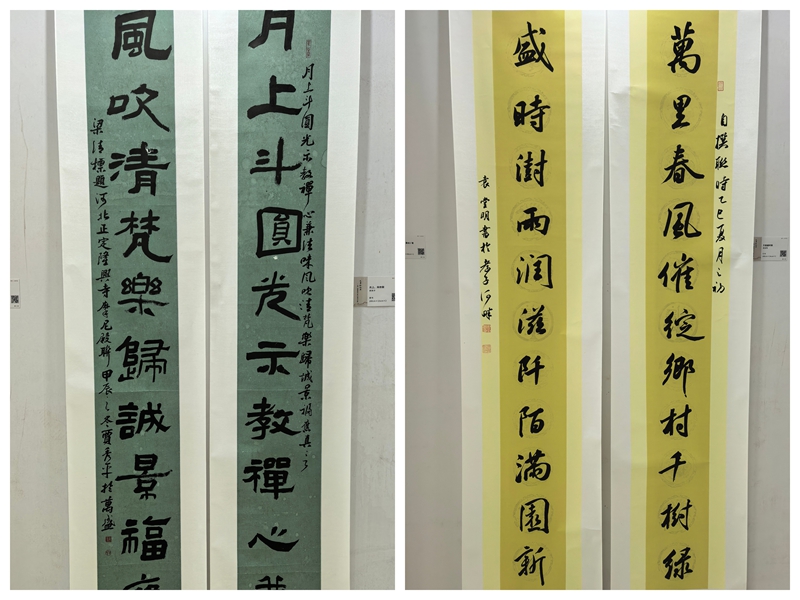 月上斗圓光示教禪心
月上斗圓光示教禪心兼法味風吹清梵樂歸誠景
風吹清梵樂歸誠景福
梁清標題河北正定隆興寺摩尼殿聯 甲辰之冬賈秀平於萬盛
自撰聯時乙巳夏月之初
萬里春風催綻鄉村千樹綠
盛時澍雨润滋阡陌满園新
袁堂明書於孝子河畔